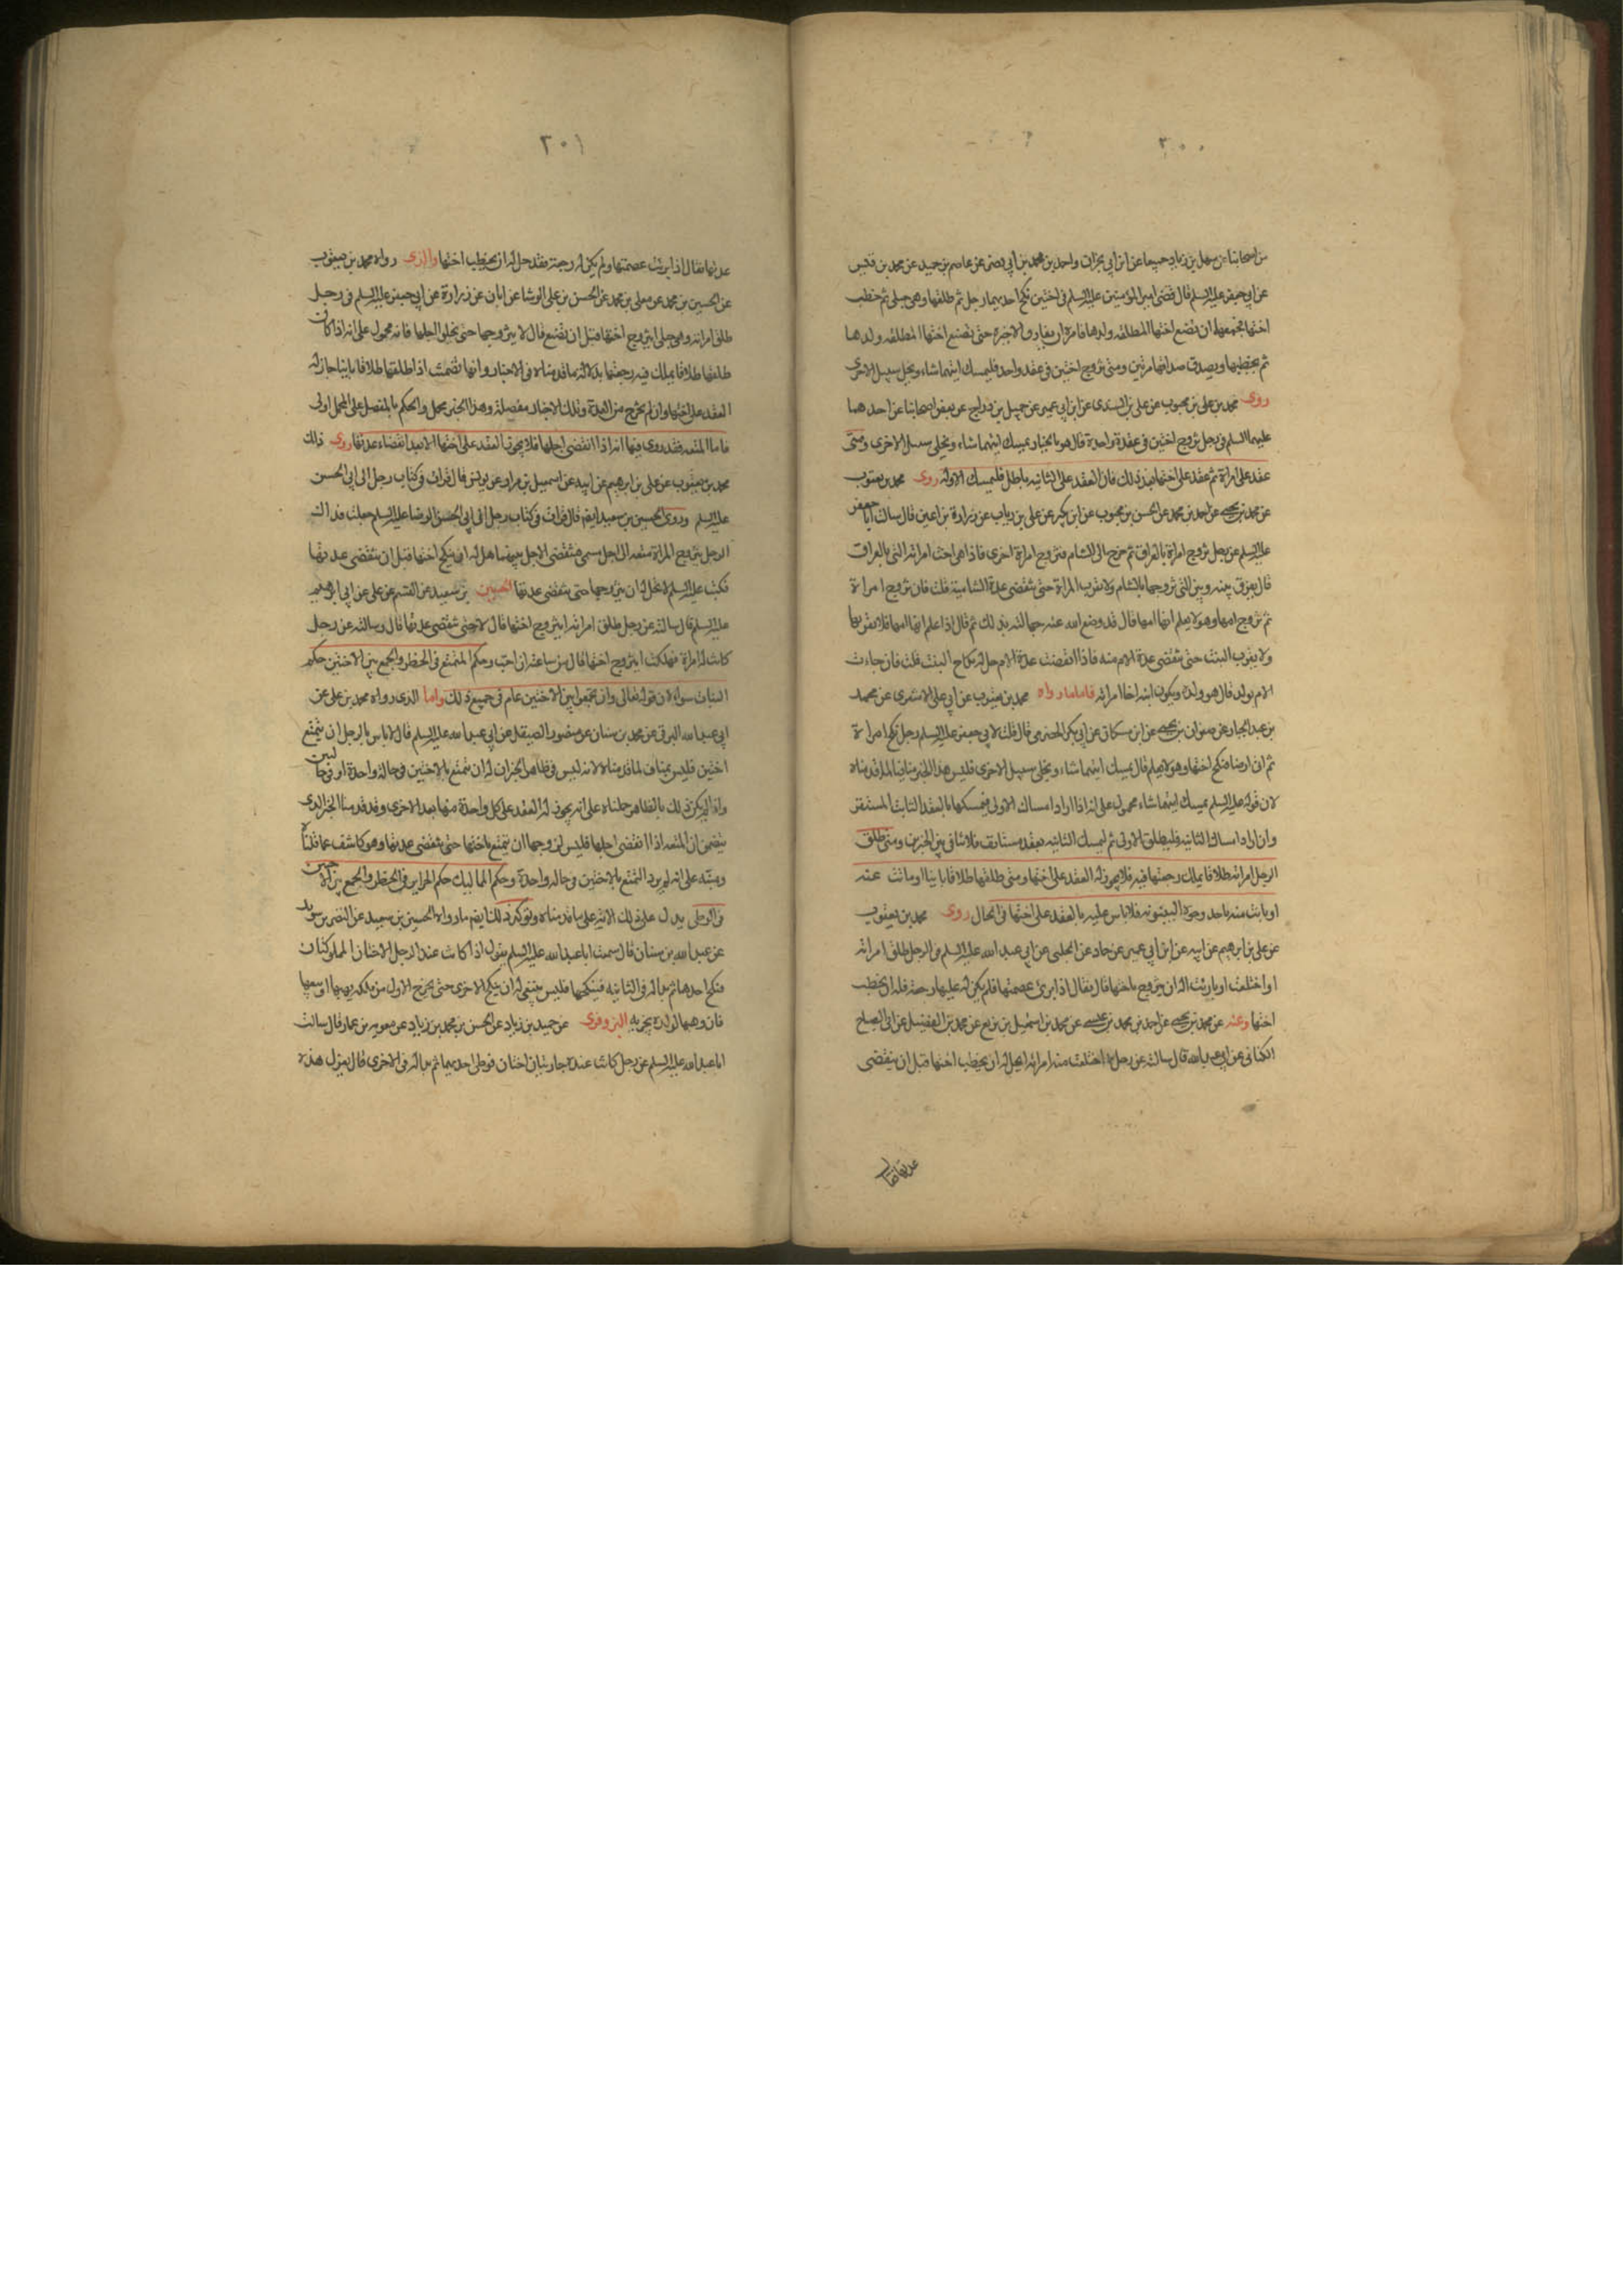 ٣٠٠
من اصحابنا عن سهل بن زياد جميعا عن ابن ابي نجران واحمد بن محمد بن ابي نصر عن عاصم بن حميد عن محمد بن قيس
عن ابي جعفر عليه السلم قال قضى امير المؤمنين عليه السلم في اختين نكح احديهما رجل ثم طلقها وهي حبلى ثم خطب
اختها فجمعهما ان تضع اختها المطلقه ولدها فامره ان يفارق الاخيرة حتى تضع اختها المطلقه ولدها
ثم يخطبها ويصدق صداقها مرتين ومتى تزوج اختين في عقد واحد فليمسك ايتهما شاء ويخل سبيل الاخرى
روى محمد بن علي بن محبوب عن علي بن السندي عن ابن ابي عمير عن جميل بن دراج عن بعض اصحابنا عن احدهما
عليهما السلم في رجل تزوج اختين في عقدة واحدة قال هو بالخيار يمسك ايتهما شاء ويخلي سبيل الاخرى ومتى
عقد على امراة ثم عقد على اختها بعد ذلك فان العقد على الثانيه باطل فليمسك الاوله روى محمد بن يعقوب
عن محمد بن يحيى عن احمد بن محمد عن الحسن بن محبوب عن ابن بكير عن علي بن رياب عن زرارة بن اعين قال سالت ابا جعفر
عليه السلم عن رجل تزوج امراة بالعراق ثم خرج الى الشام فتزوج امراة اخرى فاذا هي اخت امراته التي بالعراق
قال يفرق بينه وبين التي تزوجها بالشام ولا يقرب المراة حتى تنقضى عدة الشاميه قلت فان تزوج امراة
ثم تزوج امها وهو لا يعلم انها امها قال قد وضع الله عنه جهالته بذلك ثم قال اذا علم انها امها فلا يقربها
ولا يقرب البنت حتى تنقضى عدة الام منه فاذا انقضت عدة الام حل له نكاح البنت قلت فان جاءت
الام بولد قال هو ولده ويكون ابنه اخا امراته فاما ما رواه محمد بن يعقوب عن ابي علي الاشعرى عن محمد
بن عبد الجبار عن صفوان بن يحيى عن ابن مسكان عن ابي بكر الحضرمى قال قلت لابي جعفر عليه السلم رجل نكح امراة
ثم اتى ارضا فنكح اختها وهو لا يعلم قال يمسك ايتهما شاء ويخلى سبيل الاخرى فليس هذا الخبر منافيا لما قدمناه
لان قوله عليه السلم يمسك ايتهما شاء محمول على انه اذا اراد امساك الاولى فيمسكها بالعقد الثابت المستقر
وان اراد امساك الثانيه فليطلق الاولى ثم ليمسك الثانيه بعقد مستانف فلا تنافي بين الخبرين ومتى طلق
الرجل امراته طلاقا يملك رجعتها فيه فلا يجوز له العقد على اختها ومتى طلقها طلاقا باينا او ماتت عنه
او بانت منه باحد وجوه البينونه فلا باس عليه بالعقد على اختها في الحال روى محمد بن يعقوب
عن علي بن ابرهيم عن ابيه عن ابن ابي عمير عن حماد عن الحلبى عن ابي عبد الله عليه السلم في الرجل طلق امراته
او اختلعت او باريت اله ان يتزوج باختها قال فقال اذا برى عصمتها فلم يكن له عليها رجعة فله ان يخطب
اختها وعنه عن محمد بن يحيى عن احمد بن محمد بن عيسى عن محمد بن اسمعيل بن بزيع عن محمد بن الفضيل عن ابي الصباح
الكناني عن ابي عبد الله قال سالته عن رجل اختلعت منه امراته ايحل له ان يخطب اختها قبل ان ينقضى
عدتها فقال
٣٠١
عدتها فقال اذا بريت عصمتها ولم يكن له رجعة فقد حل له ان يخطب اختها والذى رواه محمد بن يعقوب
عن الحسين بن محمد عن معلى بن محمد عن الحسن بن علي الوشا عن ابان عن زرارة عن ابي جعفر عليه السلم في رجل
طلق امراته وهي حبلى ايتزوج اختها قبل ان تضع قال لا يتزوجها حتى يخلو اجلها فانه محمول على انه اذا كان
طلقها طلاقا يملك فيه رجعتها بدلالة ما قدمناه في الاخبار وانها تضمنت اذا طلقها طلاقا باينا جاز له
العقد على اختها وان لم تخرج من العدة وتلك الاخبار مفصلة وهذا الخبر مجمل والحكم بالمفصل على المجمل اولى
فاما المتعه فقد روى فيها انه اذا انقضى اجلها فلا يجوز العقد على اختها الا بعد انقضاء عدتها روى ذلك
محمد بن يعقوب عن علي بن ابرهيم عن ابيه عن اسمعيل بن مرار عن يونس قال قرات في كتاب رجل الى ابي الحسن
عليه السلم وروى الحسين بن سعيد ايضا قال قرات في كتاب رجل الى ابي الحسن الرضا عليه السلم جعلت فداك
الرجل يتزوج المراة متعه الى اجل مسمى فينقضى الاجل بينهما هل له ان ينكح اختها قبل ان تنقضى عدتها
فكتب عليه السلم لا يحل له ان يتزوجها حتى تنقضى عدتها الحسين بن سعيد عن القسم عن علي عن ابي ابرهيم
عليه السلم قال سالته عن رجل طلق امراته ايتزوج اختها قال لا حتى تنقضى عدتها قال وسالته عن رجل
كانت له امراة فهلكت ايتزوج اختها قال من ساعته ان احب وحكم المتمتع في الحظر والجمع بين الاختين حكم
البنات سواء لان قوله تعالى وان تجمعوا بين الاختين عام في جميع ذلك واما الذى رواه محمد بن علي عن
ابي عبد الله البرقي عن محمد بن سنان عن منصور الصيقل عن ابي عبد الله عليه السلم قال لا باس بالرجل ان يتمتع
اختين فليس بمناف لما قدمناه لانه ليس في ظاهر الخبر ان له ان يتمتع بالاختين في حالة واحدة او في حالتين
واذا لم يكن ذلك بالظاهر حملناه على انه يجوز له العقد على كل واحدة منهما بعد الاخرى وقد قدمنا الخبر الذى
يتضمن ان المتعه اذا انقضى اجلها فليس لزوجها ان يتمتع باختها حتى تنقضى عدتها وهو كاشف عما قلناه
ومنبه على انه لم يرد التمتع بالاختين في حالة واحدة وحكم المماليك حكم الحراير في الحظر والجمع بين الاختين
في الوطى يدل على ذلك الاية على ما قدمناه ويؤكد ذلك ايضا ما رواه الحسين بن سعيد عن النضر بن سويد
عن عبد الله بن سنان قال سمعت ابا عبد الله عليه السلم يقول اذا كانت عند الرجل الاختان المملوكتان
فنكح احدهما ثم بدا له في الثانيه فينكحها فليس ينبغى له ان ينكح الاخرى حتى يخرج الاول من ملكه يهبها او يبيعها
فان وهبها لولده يجزيه البزوفرى عن حميد بن زياد عن الحسن بن محمد بن زياد عن معويه بن عمار قال سالت
ابا عبد الله عليه السلم عن رجل كانت عنده جاريتان اختان فوطى احديهما ثم بدا له في الاخرى قال يعزل هذه